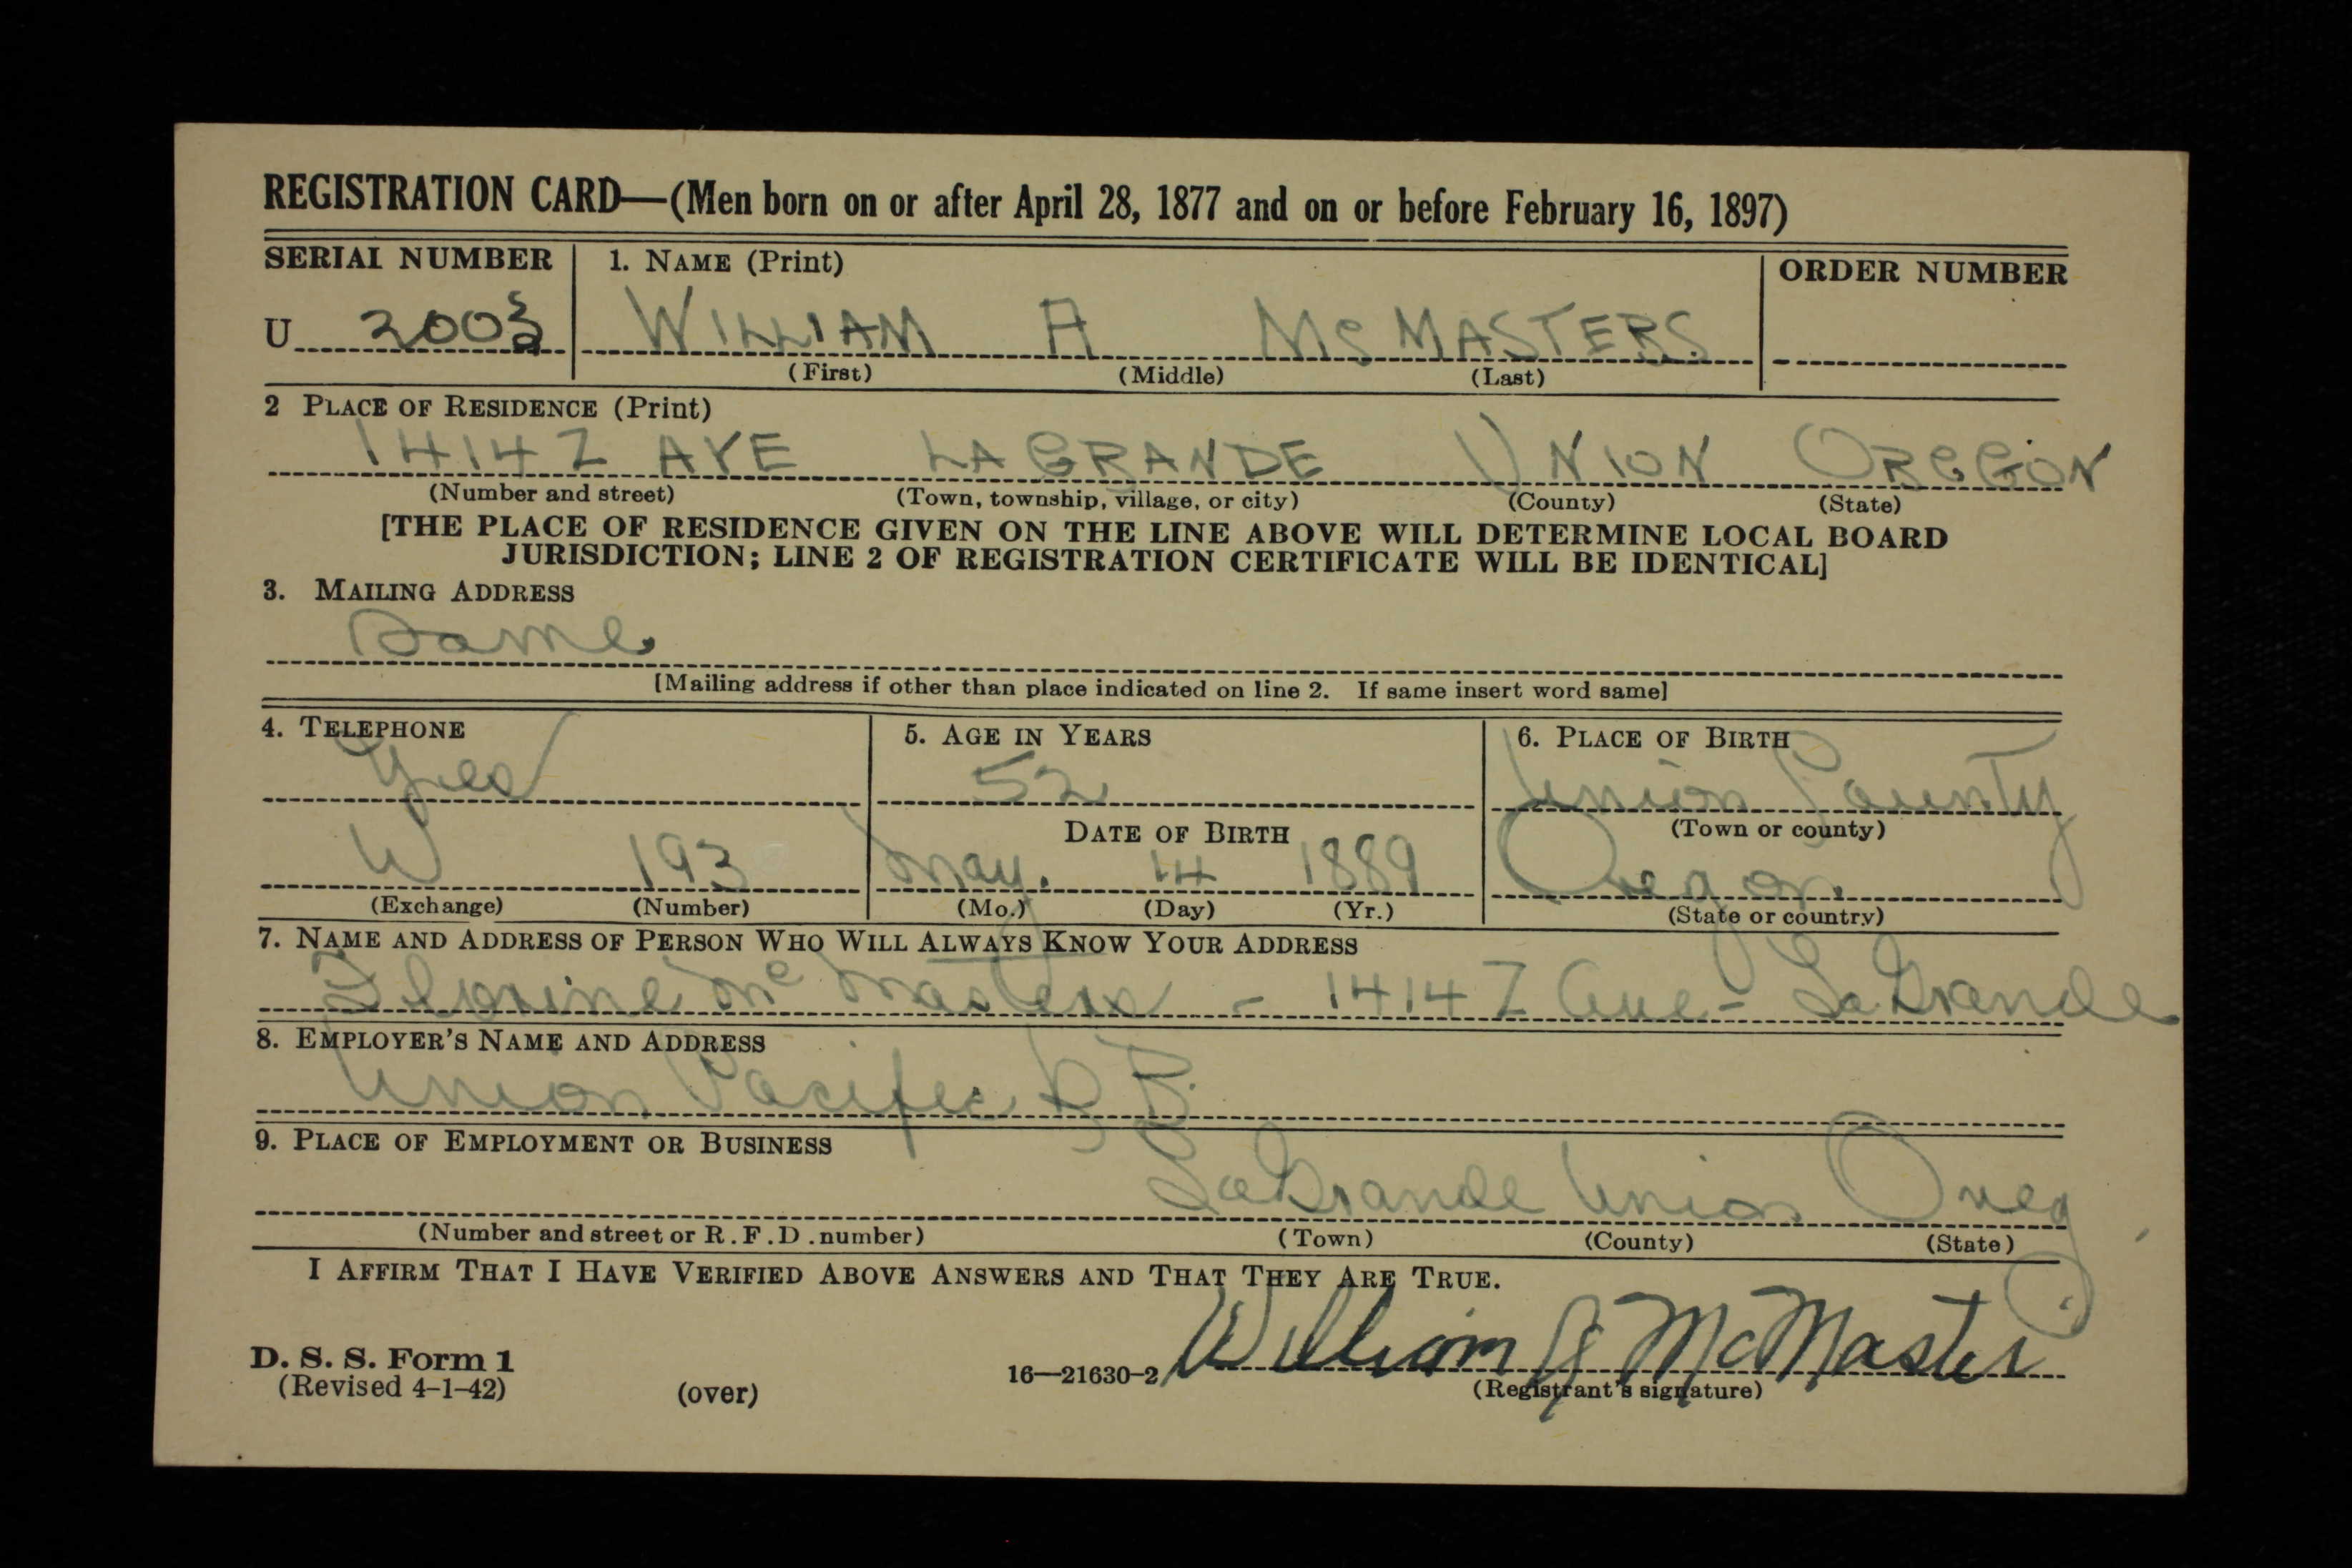 REGISTRATION CARD—(Men born on or after April 28, 1877 and on or before February 16, 1897)
SERIAL NUMBER 1. NAME (Print) ORDER NUMBER
U WILLIAM A McMASTERS
(First) (Middle) (Last)
2 PLACE OF RESIDENCE (Print)
1414 Z AVE LA GRANDE UNION OREGON
(Number and street) (Town, township, village, or city) (County) (State)
[THE PLACE OF RESIDENCE GIVEN ON THE LINE ABOVE WILL DETERMINE LOCAL BOARD
JURISDICTION; LINE 2 OF REGISTRATION CERTIFICATE WILL BE IDENTICAL]
3. MAILING ADDRESS
Same
[Mailing address if other than place indicated on line 2. If same insert word same]
4. TELEPHONE 5. AGE IN YEARS 6. PLACE OF BIRTH
Yes 52 Union County
DATE OF BIRTH (Town or county)
W 193 May. 14 1889 Oregon.
(Exchange) (Number) (Mo.) (Day) (Yr.) (State or country)
7. NAME AND ADDRESS OF PERSON WHO WILL ALWAYS KNOW YOUR ADDRESS
McMasters - 1414 Z Ave - La Grande
8. EMPLOYER'S NAME AND ADDRESS
Union Pacific R R.
9. PLACE OF EMPLOYMENT OR BUSINESS
La Grande Union Oreg.
(Number and street or R.F.D. number) (Town) (County) (State)
I AFFIRM THAT I HAVE VERIFIED ABOVE ANSWERS AND THAT THEY ARE TRUE.
D. S. S. Form 1 16—21630-2 William McMaster
(Revised 4-1-42) (over) (Registrant's signature)